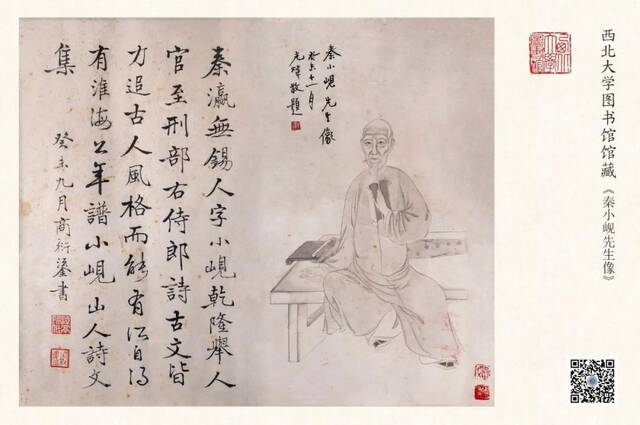 西北大学图书馆馆藏
《秦小岘先生像》
秦小峴先生像
癸未十一月
敬題
秦瀛無錫人字小峴乾隆舉人
官至刑部右侍郎詩古文皆
力追古人風格而能有所自得
有淮海公年譜小峴山人詩文
集
癸未九月商衍鎏書